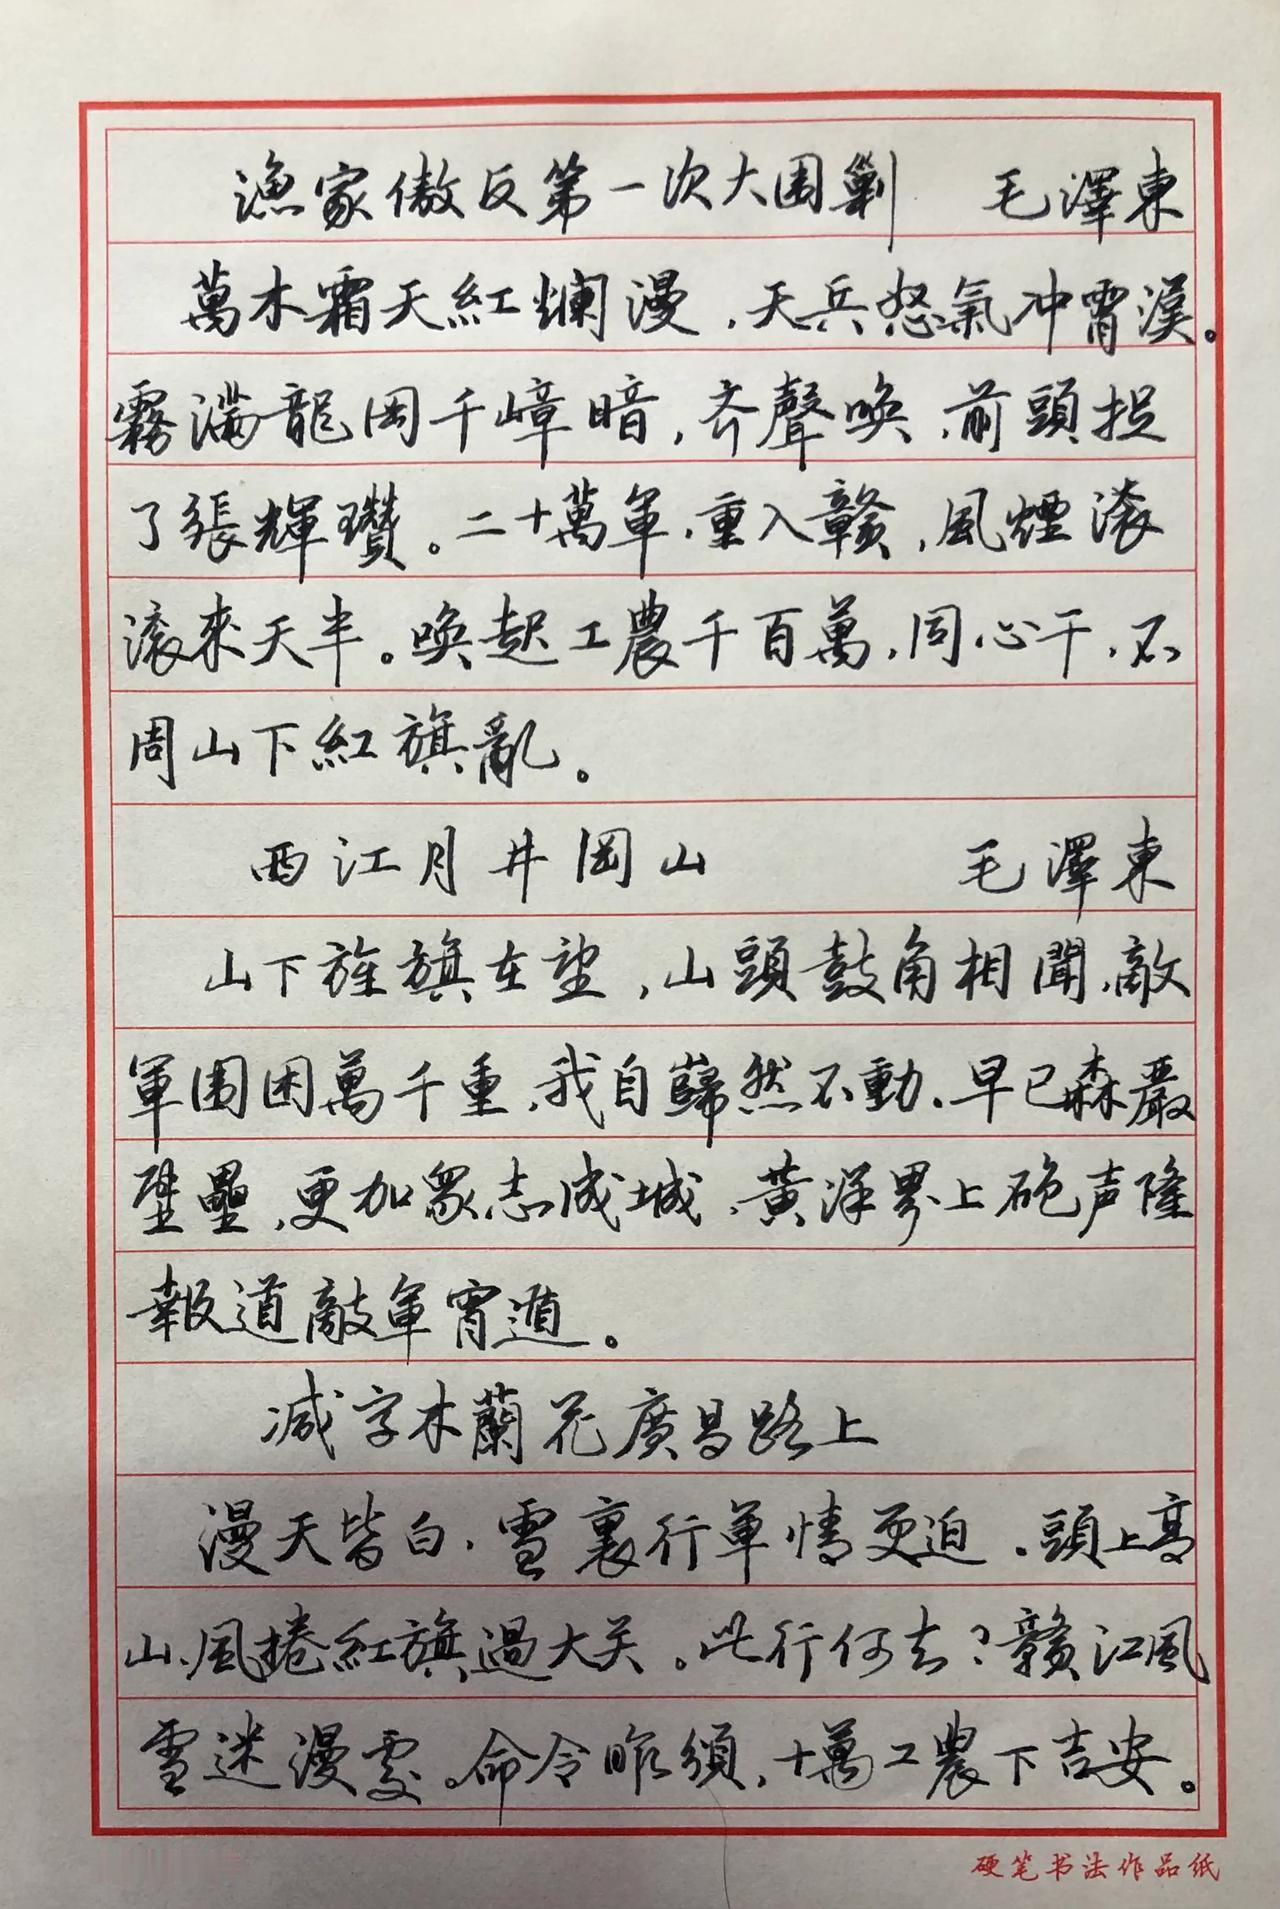 漁家傲反第一次大围剿 毛澤東
萬木霜天紅爛漫，天兵怒氣冲霄漢。
霧滿龍岡千嶂暗，齐聲唤，前頭捉
了張輝瓚。二十萬軍，重入贛，風煙滚
滚來天半。唤起工農千百萬，同心干，不
周山下紅旗亂。
西江月井岡山 毛澤東
山下旌旗在望，山頭鼓角相聞，敵
軍围困萬千重，我自巋然不動。早已森嚴
壁壘，更加衆志成城，黃洋界上砲声隆
報道敵軍宵遁。
减字木蘭花廣昌路上
漫天皆白，雪裏行軍情更迫。頭上高
山，風捲紅旗過大关。此行何去？贛江風
雪迷漫處。命令昨頒，十萬工農下吉安。
硬笔书法作品纸